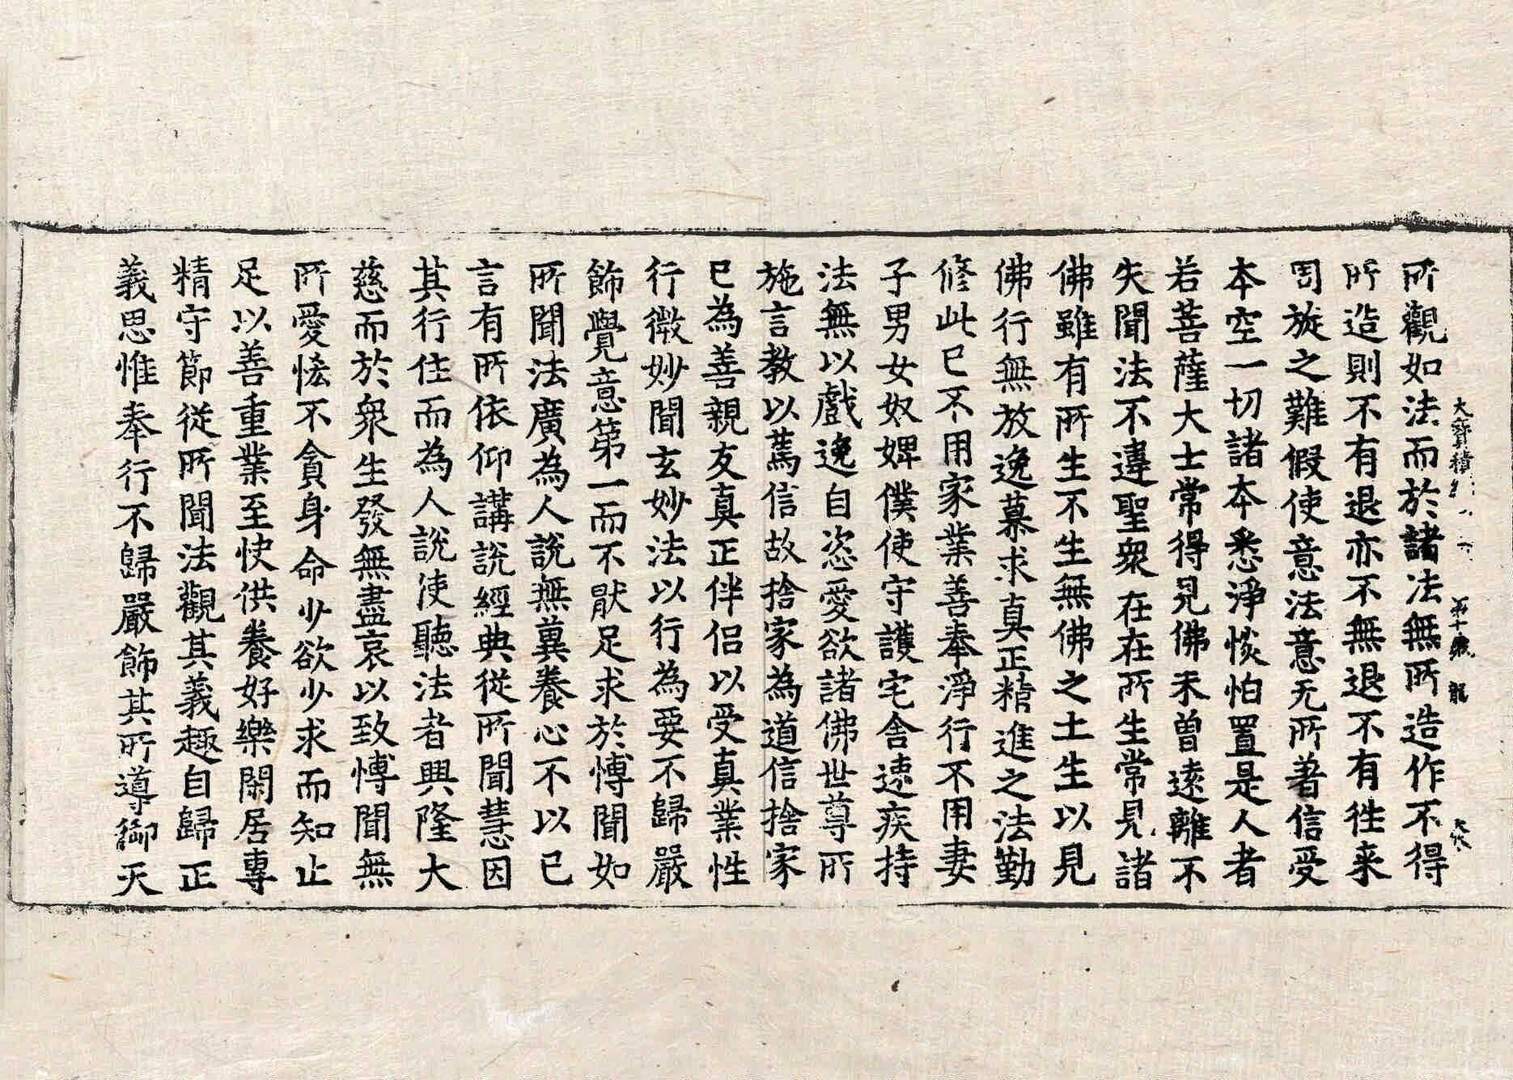 所觀如法而於諸法無所造作不得
所造則不有退亦不無退不有往来
周旋之難假使意法意无所著信受
本空一切諸本悉淨惔怕置是人者
若菩薩大士常得見佛未曽遠離不
失聞法不違聖衆在在所生常見諸
佛雖有所生不生無佛之土生以見
佛行無放逸慕求真正精進之法勤
修此已不用家業善奉淨行不用妻
子男女奴婢僕使守護宅舎速疾持
法無以戲逸自恣愛欲諸佛世尊所
施言教以篤信故捨家為道信捨家
已為善親友真正伴侣以受真業性
行微妙聞玄妙法以行為要不歸嚴
飾覺意第一而不猒足求於慱聞如
所聞法廣為人説無兾養心不以已
言有所依仰講説經典從所聞慧因
其行住而為人説使聽法者興隆大
慈而於衆生發無盡哀以致慱聞無
所愛悋不貪身命少欲少求而知止
足以善重業至快供養好樂閑居專
精守節從所聞法觀其義趣自歸正
義思惟奉行不歸嚴飾其所導御天
大寳積 第十 龍